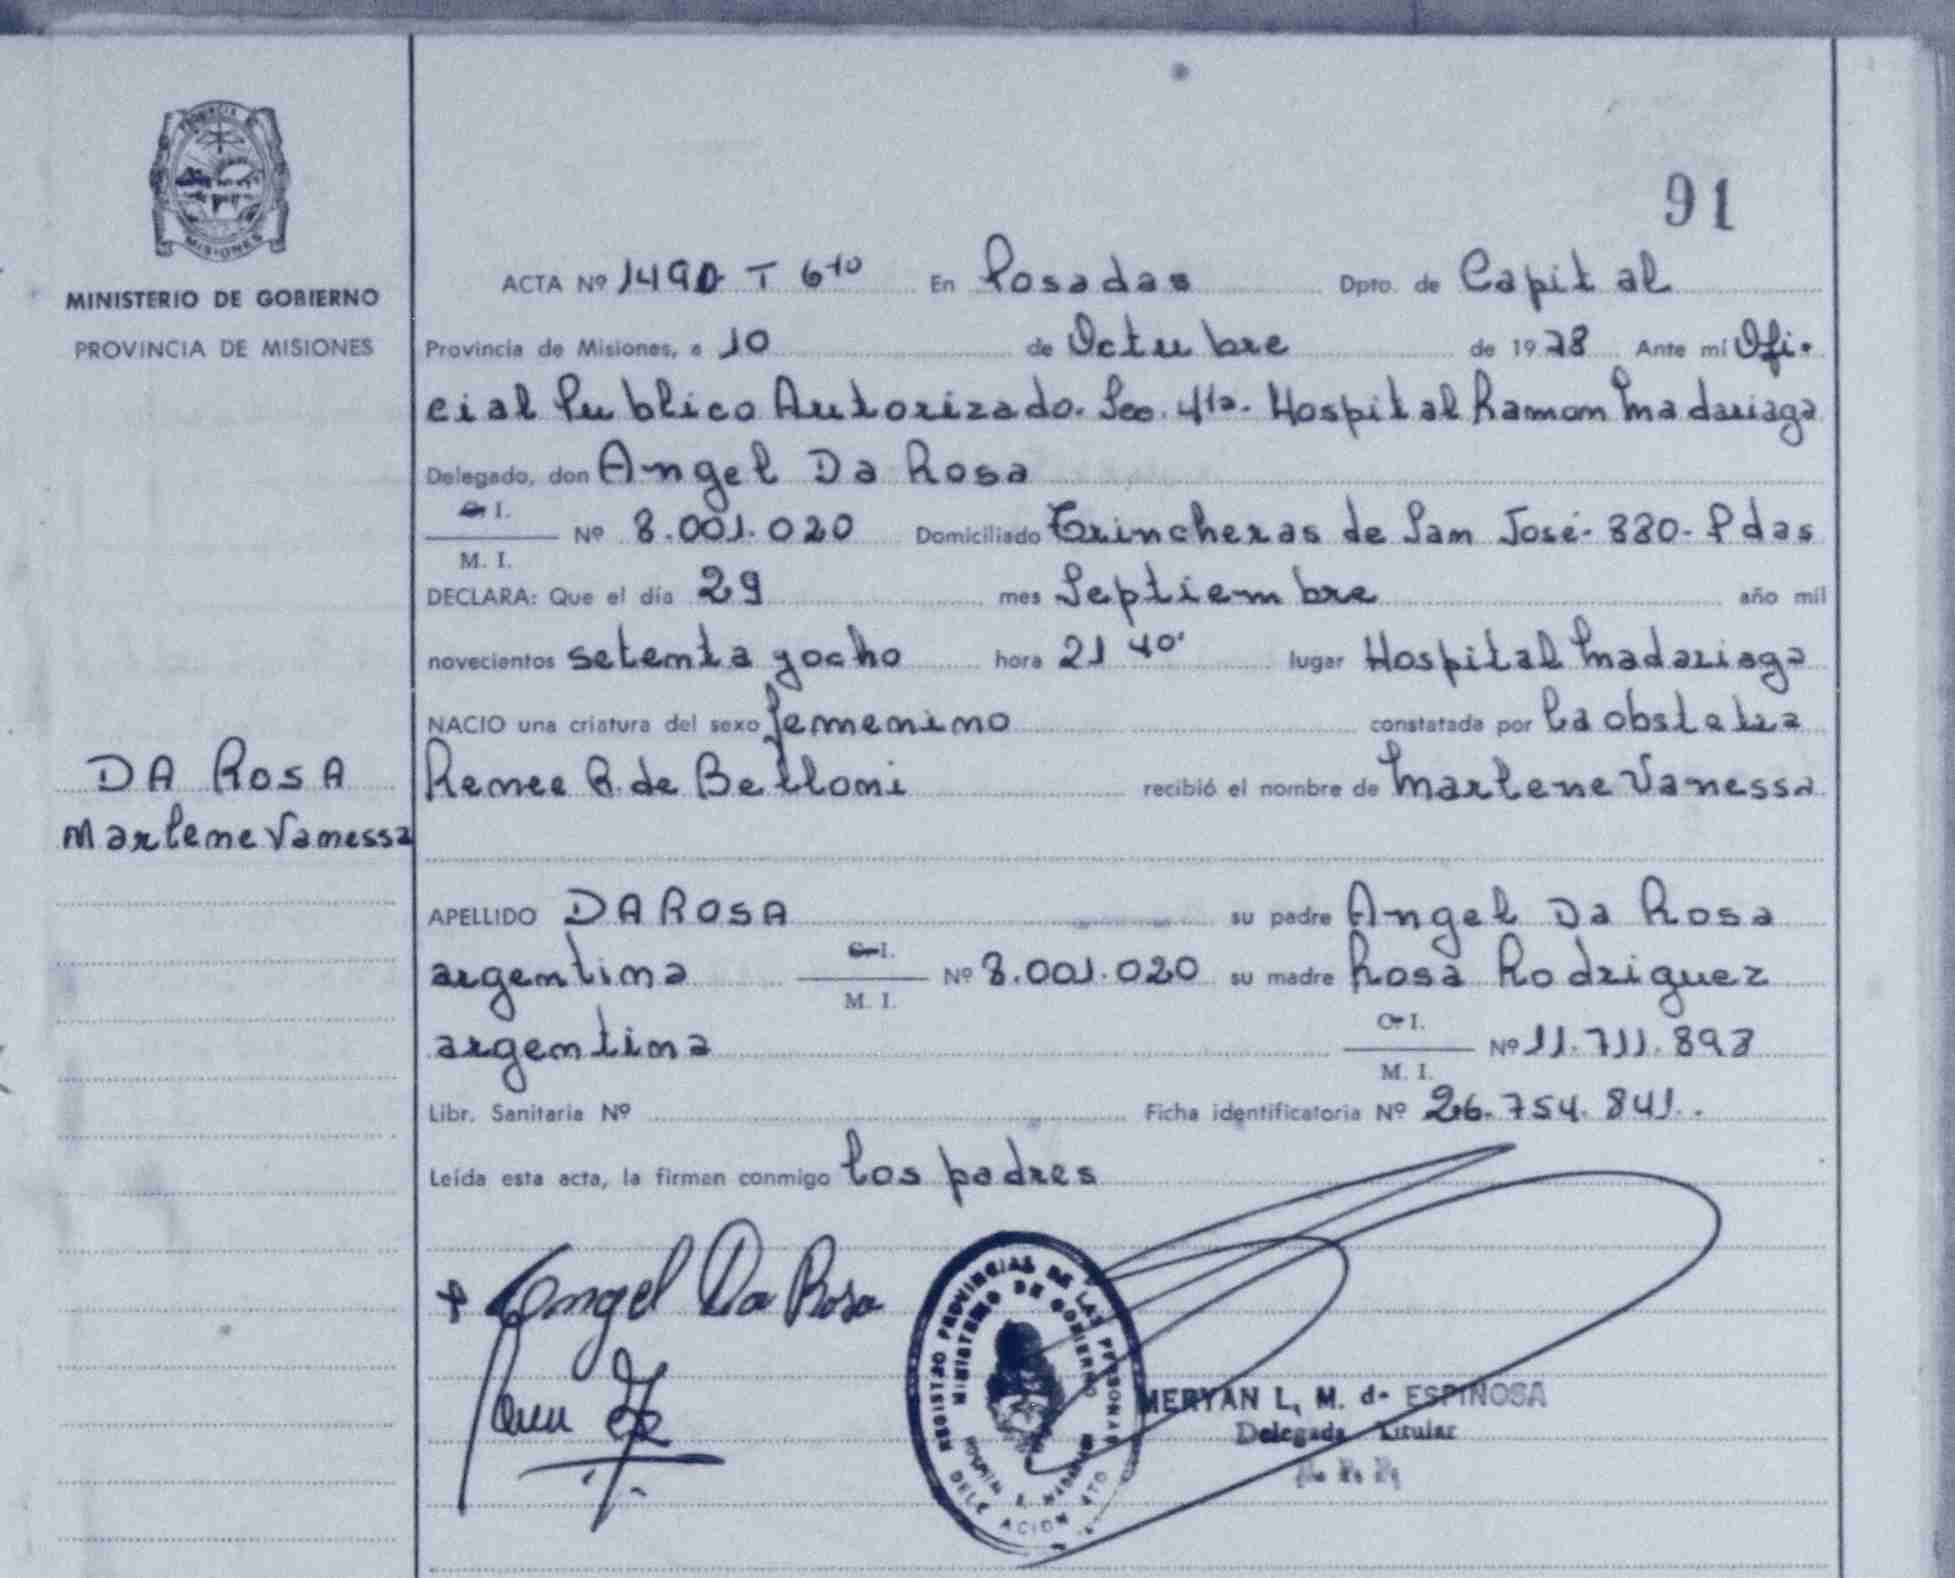 PROVINCIA DE
MISIONES
MINISTERIO DE GOBIERNO
PROVINCIA DE MISIONES
DA ROSA
Marlene Vanessa
91
ACTA Nº 1490 T 6to En Posadas Dpto. de Capital
Provincia de Misiones, a 10 de Octubre de 1978 Ante mí Ofi-
cial Publico Autorizado. Sec. 4ta. Hospital Ramon Madariaga
Delegado, don Angel Da Rosa
C. I.
M. I.
Nº 8.001.020 Domiciliado Trincheras de San José- 880- Pdas
DECLARA: Que el día 29 mes Septiembre año mil
novecientos setenta y ocho hora 21 40' lugar Hospital Madariaga
NACIO una criatura del sexo femenino constatada por la obstetra
Renee R. de Belloni recibió el nombre de Marlene Vanessa
APELLIDO DA ROSA su padre Angel Da Rosa
argentina C. I. M. I. Nº 8.001.020 su madre Rosa Rodriguez
argentina C. I. M. I. Nº 11.711.898
Libr. Sanitaria Nº Ficha identificatoria Nº 26.754.841.
Leída esta acta, la firman conmigo los padres
Angel Da Rosa
REGISTRO PROVINCIAS DE LAS PERSONAS
MINISTERIO DE GOBIERNO
DELEGACION
MERYAN L, M. de ESPINOSA
Delegada Titular